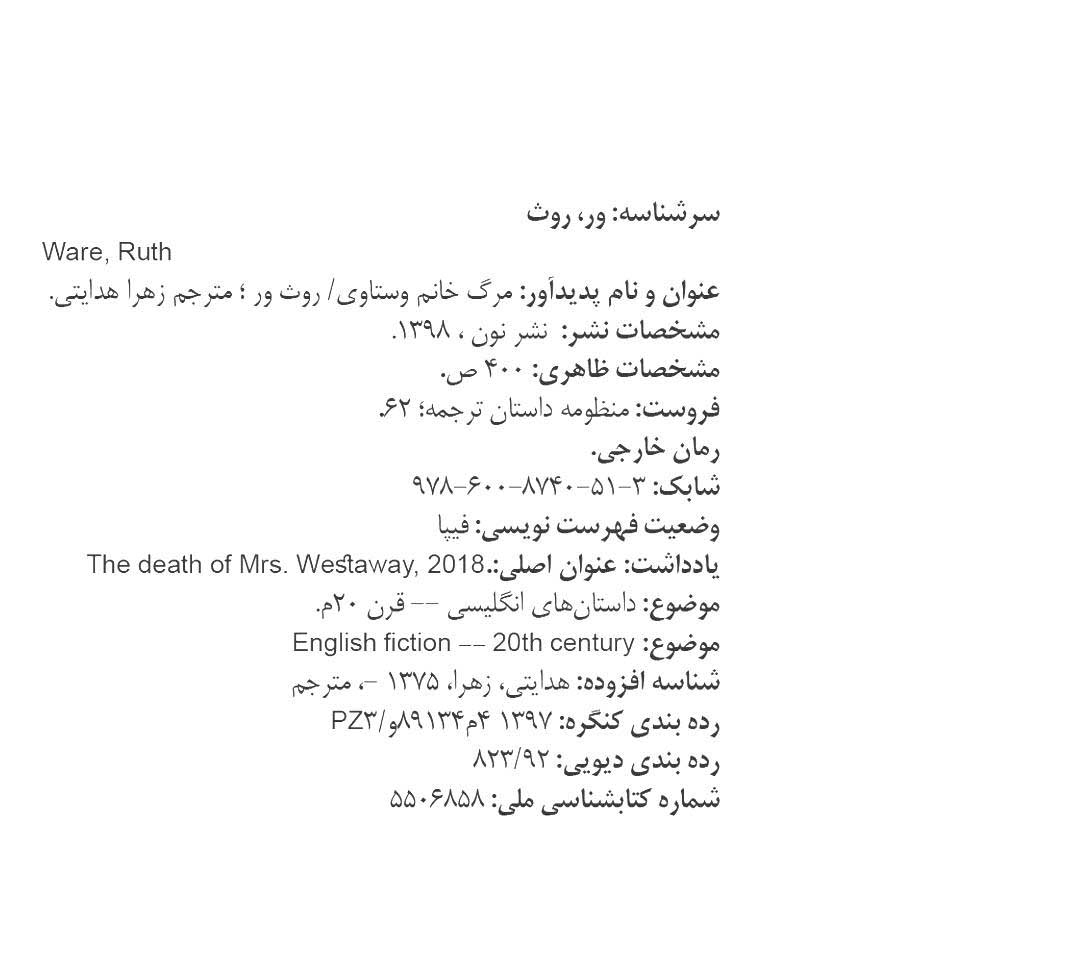 سرشناسه: ور، روث
Ware, Ruth
عنوان و نام پدیدآور: مرگ خانم وستاوی/ روث ور ؛ مترجم زهرا هدایتی.
مشخصات نشر: نشر نون ، ۱۳۹۸.
مشخصات ظاهری: ۴۰۰ ص.
فروست: منظومه داستان ترجمه؛ ۶۲.
رمان خارجی.
شابک: ۳-۵۱-۸۷۴۰-۶۰۰-۹۷۸
وضعیت فهرست نویسی: فیپا
یادداشت: عنوان اصلی:.The death of Mrs. Westaway, 2018
موضوع: داستان‌های انگلیسی -- قرن ۲۰م.
موضوع: English fiction -- 20th century
شناسه افزوده: هدایتی، زهرا، ۱۳۷۵ -، مترجم
رده بندی کنگره: ۱۳۹۷ ۴م۸۹۱۳۴و/PZ۳
رده بندی دیویی: ۸۲۳/۹۲
شماره کتابشناسی ملی: ۵۵۰۶۸۵۸